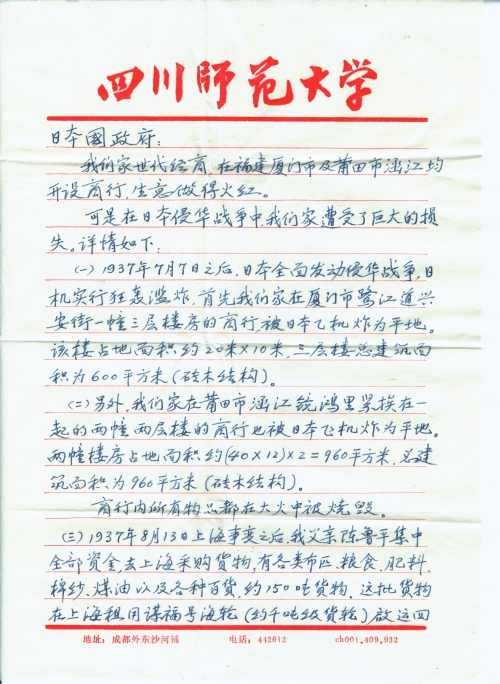 四川师范大学
日本國政府：
我们家世代经商，在福建厦门市及莆田市涵江均
开设商行，生意做得火红。
可是在日本侵华战争中，我们家遭受了巨大的损
失。详情如下：
(一) 1937年7月7日之后，日本全面发动侵华战争，日
机实行狂轰滥炸，首先我们家在厦门市鹭江道兴
安街一幢三层楼房的商行被日本飞机炸为平地。
该楼占地面积约20米×10米，三层楼总建筑面
积为600平方米(砖木结构)。
(二)另外，我们家在莆田市涵江镜鸿里紧挨在一
起的两幢两层楼的商行也被日本飞机炸为平地。
两幢楼房占地面积约(40×12)×2=960平方米，总建
筑面积为960平方米(砖木结构)。
商行内所有物品都在大火中被烧毁。
(三) 1937年8月13日上海事变之后，我父亲陈鲁平集中
全部资金，去上海采购货物，有各类布匹、粮食、肥料、
棉纱、煤油以及各种百货，约150吨货物。这批货物
在上海租用谋福号海轮(约千吨级货轮)啟运回
地址：成都外东沙河铺
电话：442612
ch001,409,932